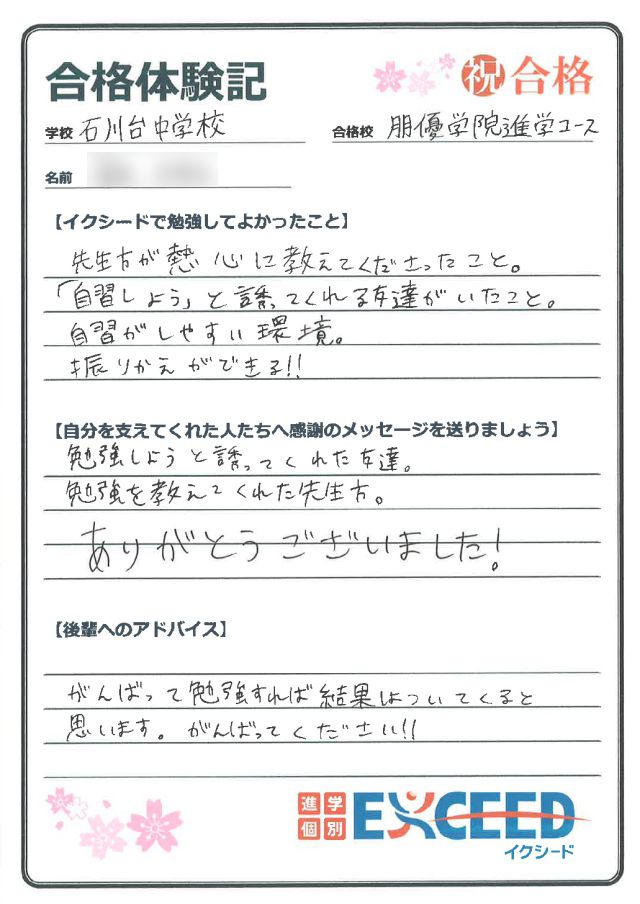 合格体験記
祝 合格
学校 石川台中学校
合格校 朋優学院進学コース
名前
【イクシードで勉強してよかったこと】
先生方が熱心に教えてくださったこと。
「自習しよう」と誘ってくれる友達がいたこと。
自習がしやすい環境。
振りかえができる!!
【自分を支えてくれた人たちへ感謝のメッセージを送りましょう】
勉強しようと誘ってくれた友達。
勉強を教えてくれた先生方。
ありがとうございました!
【後輩へのアドバイス】
がんばって勉強すれば結果はついてくると
思います。がんばってください!!
進学
個別
EXCEED
イクシード